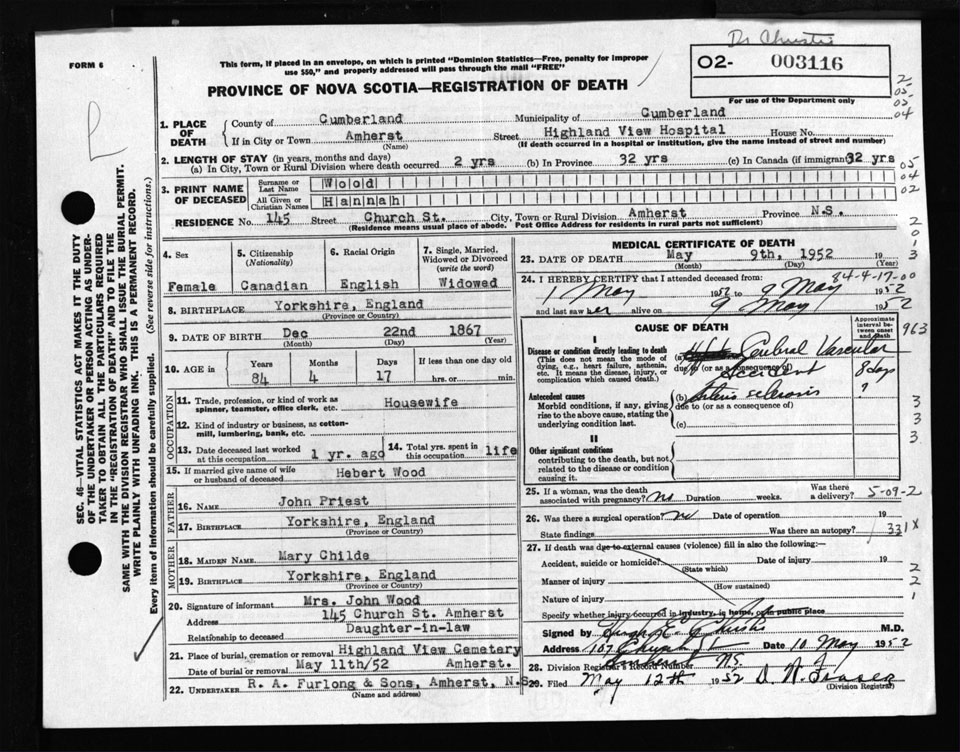 Dr Christie
FORM 6
This form, if placed in an envelope, on which is printed "Dominion Statistics—Free, penalty for improper
use $50," and properly addressed will pass through the mail "FREE"
02- 003116
For use of the Department only
PROVINCE OF NOVA SCOTIA—REGISTRATION OF DEATH
1. PLACE OF DEATH
County of Cumberland Municipality of Cumberland
If in City or Town Amherst Street Highland View Hospital House No.
(Name) (If death occurred in a hospital or institution, give the name instead of street and number)
2. LENGTH OF STAY (in years, months and days)
(a) In City, Town or Rural Division where death occurred 2 yrs (b) In Province 32 yrs (c) In Canada (if immigrant) 32 yrs
3. PRINT NAME OF DECEASED
Surname or Last Name Wood
All Given or Christian Names Hannah
RESIDENCE No. 145 Street Church St. City, Town or Rural Division Amherst Province N.S.
(Residence means usual place of abode. Post Office Address for residents in rural parts not sufficient)
4. Sex Female
5. Citizenship (Nationality) Canadian
6. Racial Origin English
7. Single, Married, Widowed or Divorced (write the word) Widowed
8. BIRTHPLACE Yorkshire, England
(Province or Country)
9. DATE OF BIRTH Dec 22nd 1867
(Month) (Day) (Year)
10. AGE in Years 84 Months 4 Days 17 If less than one day old hrs. or min.
OCCUPATION
11. Trade, profession, or kind of work as spinner, teamster, office clerk, etc. Housewife
12. Kind of industry or business, as cotton-mill, lumbering, bank, etc.
13. Date deceased last worked at this occupation 1 yr. ago
14. Total yrs. spent in this occupation life
15. If married give name of wife or husband of deceased Hebert Wood
FATHER
16. NAME John Priest
17. BIRTHPLACE Yorkshire, England
(Province or Country)
MOTHER
18. MAIDEN NAME Mary Childe
19. BIRTHPLACE Yorkshire, England
(Province or Country)
20. Signature of informant Mrs. John Wood
Address 145 Church St. Amherst
Relationship to deceased Daughter-in-law
21. Place of burial, cremation or removal Highland View Cemetery
Date of burial or removal May 11th/52 Amherst.
22. UNDERTAKER R. A. Furlong & Sons, Amherst, N.S.
(Name and address)
MEDICAL CERTIFICATE OF DEATH
23. DATE OF DEATH May 9th, 1952
(Month) (Day) (Year)
84-4-17-00
24. I HEREBY CERTIFY that I attended deceased from:
1 May 1952 to 9 May 1952
and last saw her alive on 9 May 1952
CAUSE OF DEATH
Approximate interval between onset and death
I
Disease or condition directly leading to death
(This does not mean the mode of dying, e.g., heart failure, asthenia, etc. It means the disease, injury, or complication which caused death.)
(a) Cerebral Vascular
due to (or as a consequence of)
accident 8 days
Antecedent causes
Morbid conditions, if any, giving rise to the above cause, stating the underlying condition last.
(b) Arterio sclerosis ?
due to (or as a consequence of)
(c)
II
Other significant conditions
contributing to the death, but not related to the disease or condition causing it.
25. If a woman, was the death associated with pregnancy? No Duration weeks. Was there a delivery? 5-09-2
26. Was there a surgical operation? No Date of operation 19
State findings Was there an autopsy? 331X
27. If death was due to external causes (violence) fill in also the following:—
Accident, suicide or homicide? Date of injury 19
(State which)
Manner of injury
(How sustained)
Nature of injury
Specify whether injury occurred in industry, in home, or in public place
Signed by M.D.
Address 107 Church St Date 10 May 1952
28. Division Registrar's Record Number N.S.
29. Filed May 12th 1952 D. N. Fraser
(Division Registrar)
SEC. 46—VITAL STATISTICS ACT MAKES IT THE DUTY
OF THE UNDERTAKER OR PERSON ACTING AS UNDER-
TAKER TO OBTAIN ALL THE PARTICULARS REQUIRED
IN THE "REGISTRATION OF DEATH" AND TO FILE THE
SAME WITH THE DIVISION REGISTRAR WHO SHALL ISSUE THE BURIAL PERMIT.
WRITE PLAINLY WITH UNFADING INK. THIS IS A PERMANENT RECORD.
Every item of information should be carefully supplied. (See reverse side for instructions.)
2
05-
02-
04
05
04
02
2
0
1
3
963
3
3
3
2
2
1